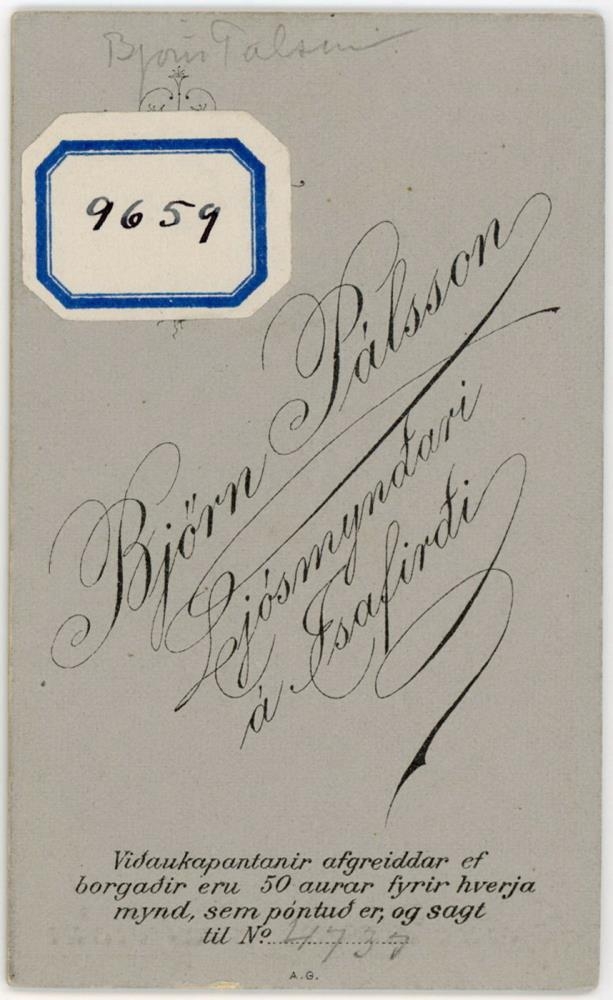 9659
Björn Pálsson
Ljósmyndari
á Ísafirði
Viðaukapantanir afgreiddar ef
borgaðir eru 50 aurar fyrir hverja
mynd, sem pöntuð er, og sagt
til Nº 4737
A.G.